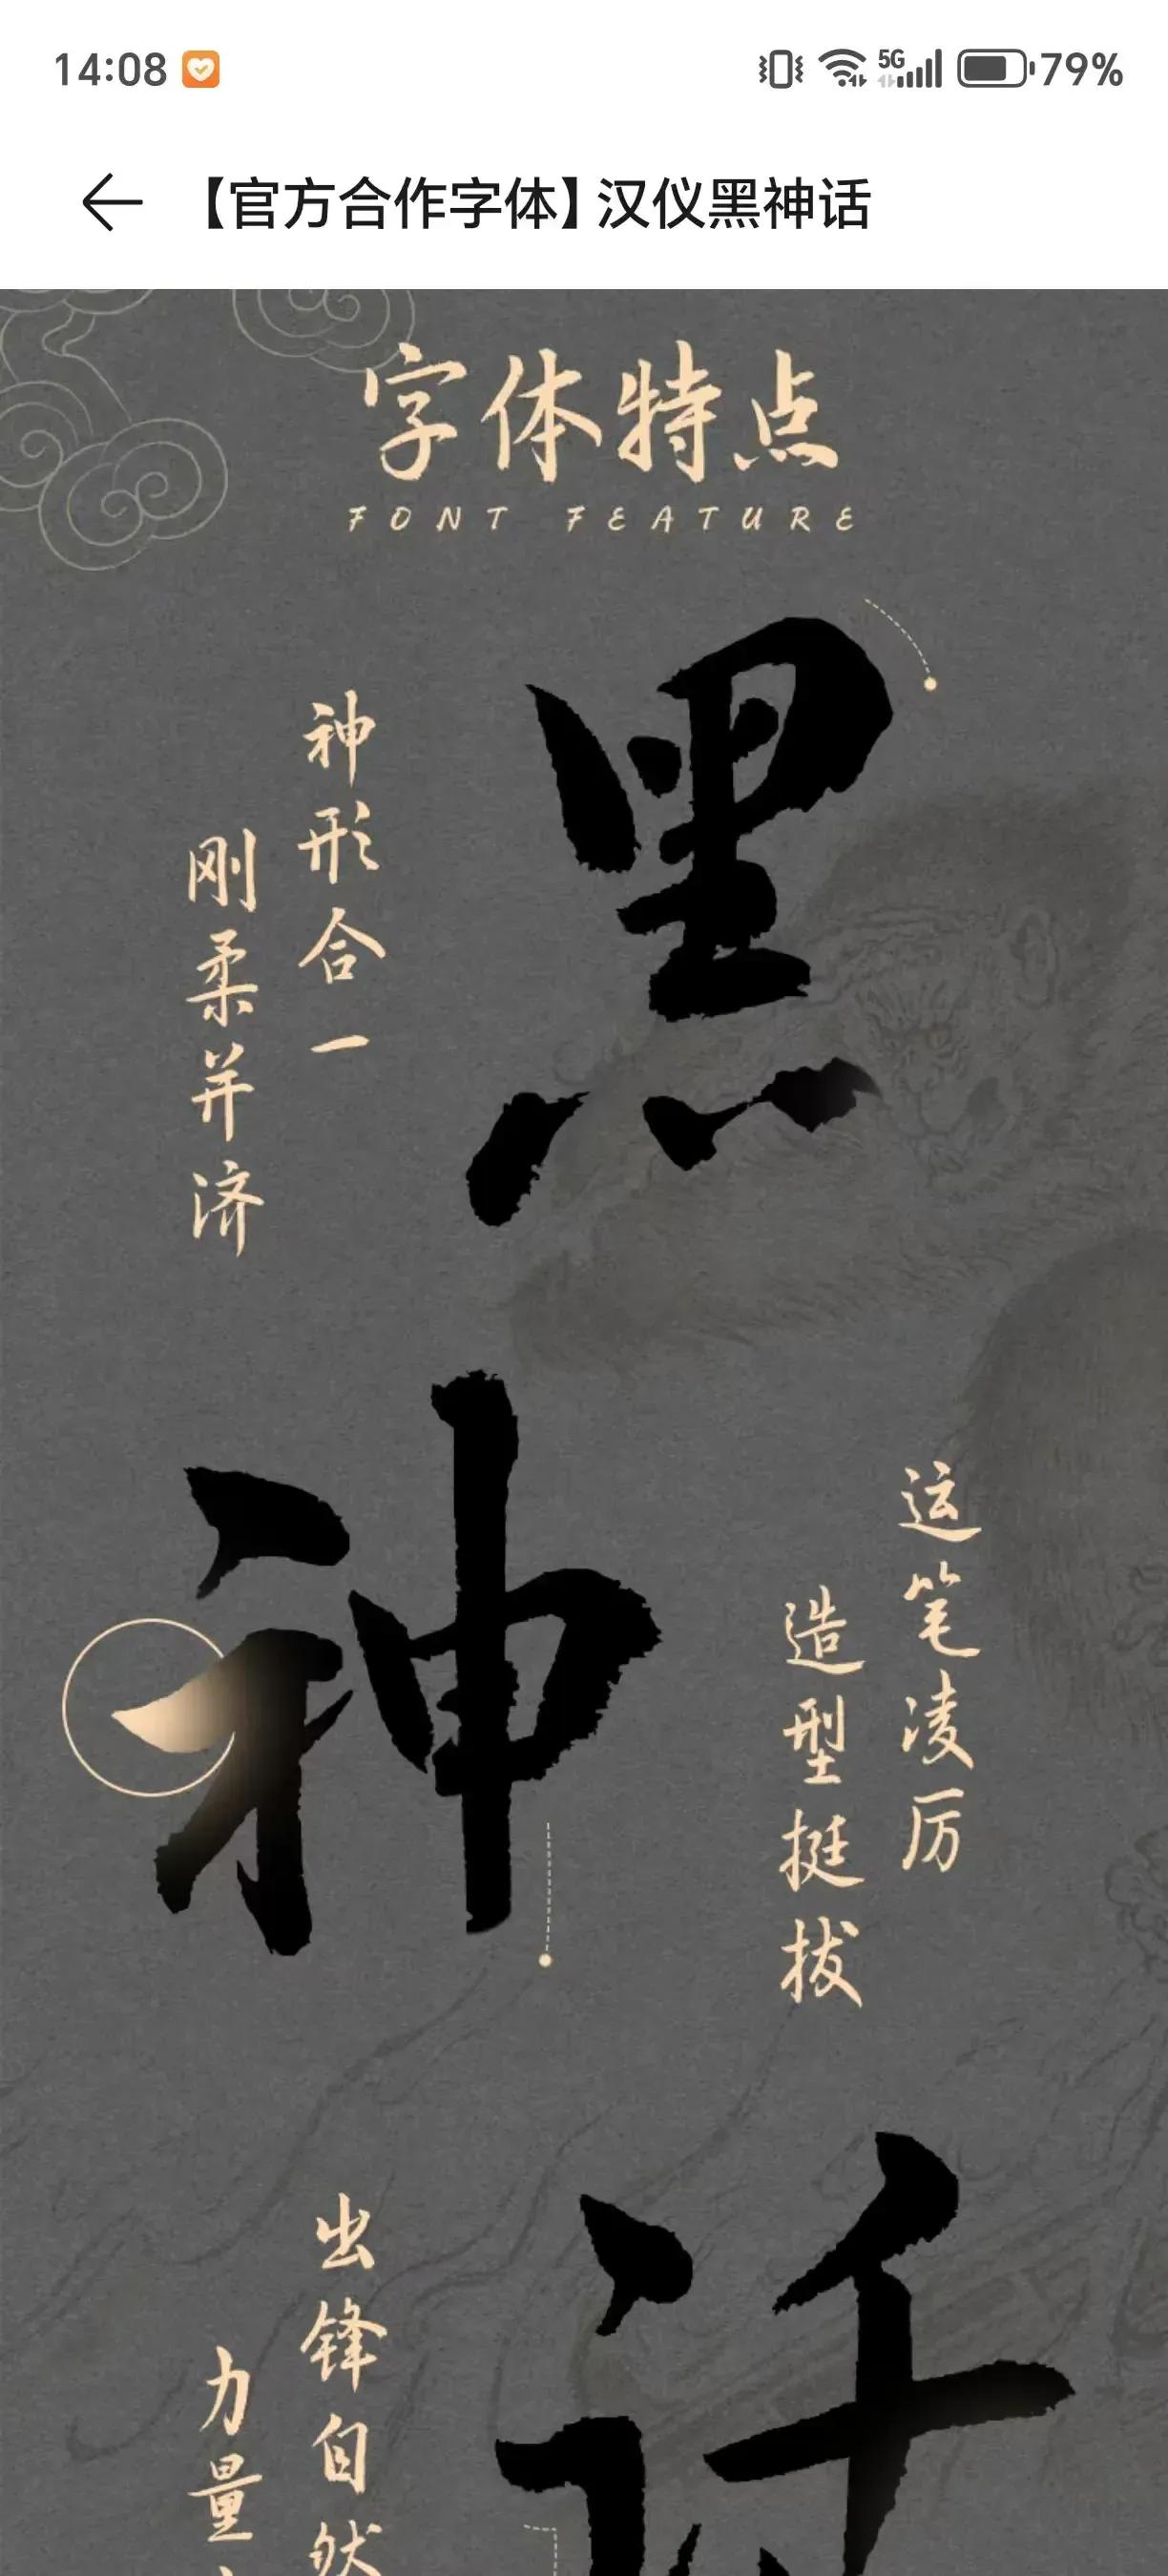 14:08
5G
79%
【官方合作字体】汉仪黑神话
字体特点
FONT FEATURE
黑
神形合一
刚柔并济
神
运笔凌厉
造型挺拔
话
出锋自然
力量